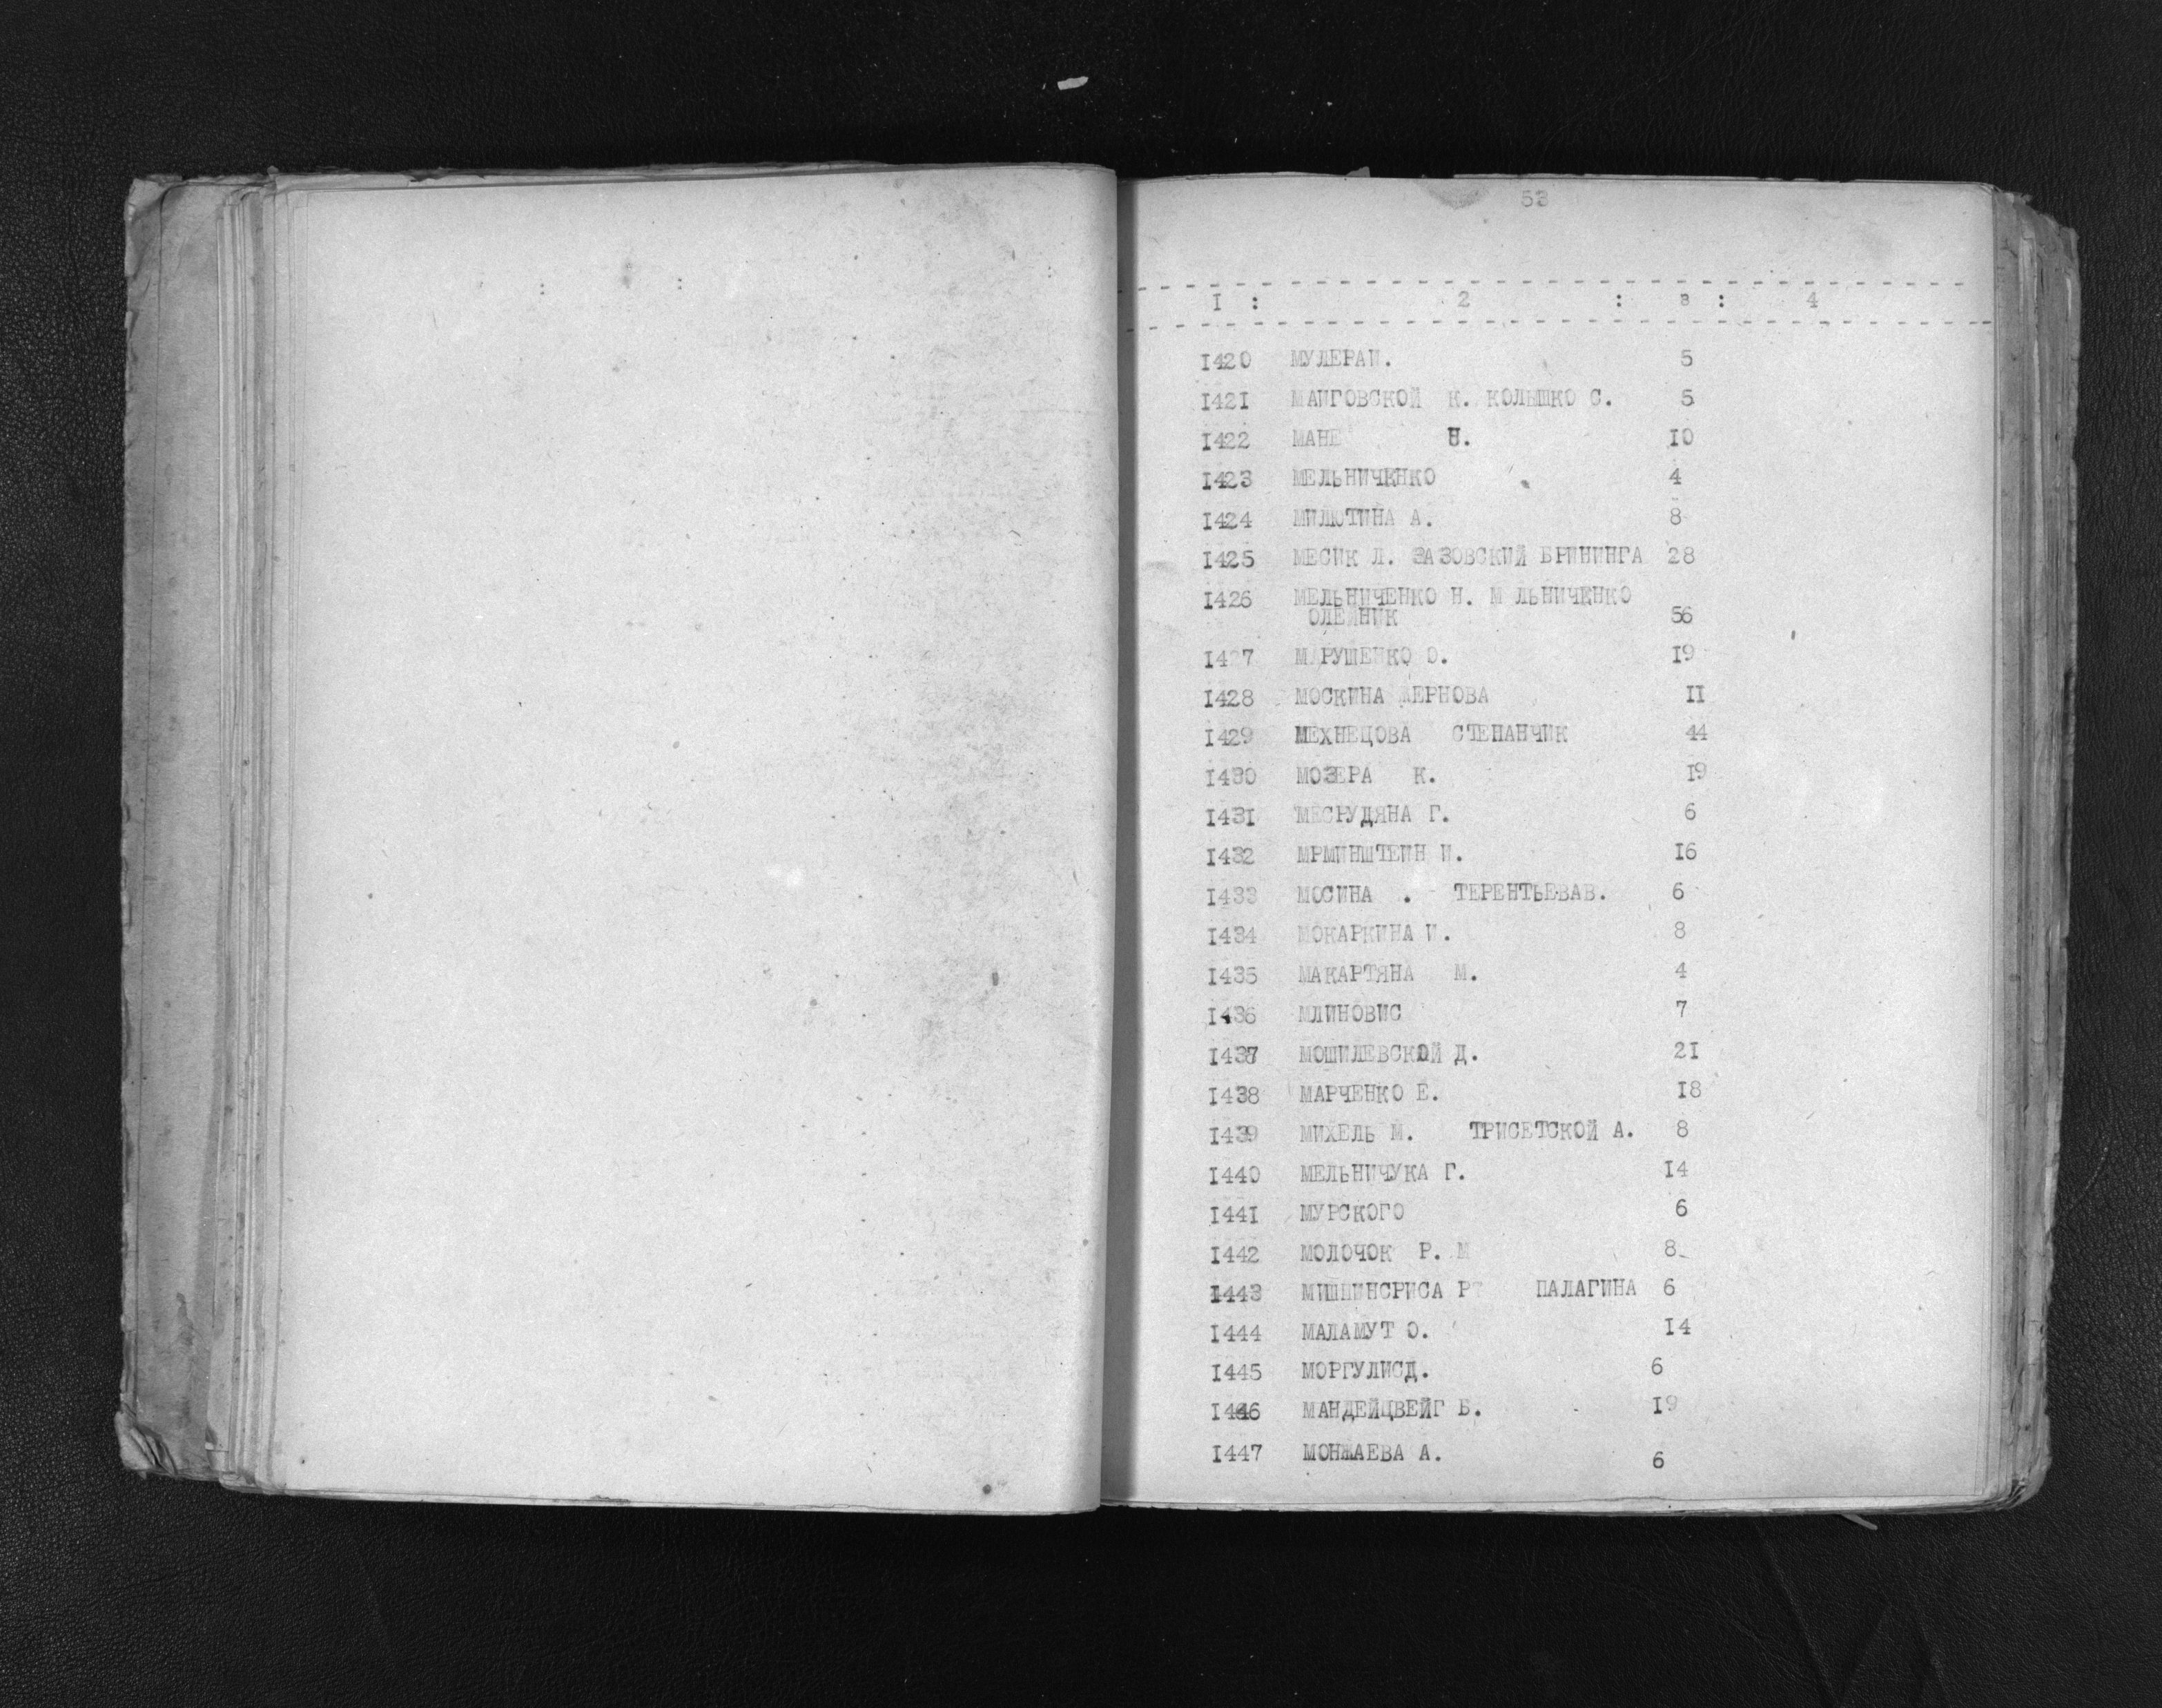 53
I : 2 : 3 : 4
I420 МУЛЕРАИ. 5
I421 МАИГОВСКОЙ К. КОЛЫШКО С. 5
I422 МАНЕ Н. IO
I423 МЕЛЬНИЧЕНКО 4
I424 МИЛЮТИНА А. 8
I425 МЕСИК Л. ЗАЗОВСКИЙ БРИНИНГА 28
I426 МЕЛЬНИЧЕНКО Н. М ЛЬНИЧЕНКО
ОЛЕЙНИК 56
I427 МАРУШЕНКО О. I9
I428 МОСКИНА ЖЕРНОВА II
I429 МЕХНЕЦОВА СТЕПАНЧИК 44
I430 МОЗЕРА К. I9
I43I МЕСРУДЯНА Г. 6
I432 МРМИНШТЕИН И. I6
I433 МОСИНА . ТЕРЕНТЬЕВАВ. 6
I434 МОКАРКИНА И. 8
I435 МАКАРТЯНА М. 4
I436 МЛИНОВИС 7
I437 МОШИЛЕВСКОЙ Д. 2I
I438 МАРЧЕНКО Е. I8
I439 МИХЕЛЬ М. ТРИСЕТСКОЙ А. 8
I440 МЕЛЬНИЧУКА Г. I4
I44I МУРСКОГО 6
I442 МОЛОЧОК Р. М 8
I443 МИШПИНСРИСА Р ПАЛАГИНА 6
I444 МАЛАМУТ О. I4
I445 МОРГУЛИСД. 6
I446 МАНДЕЙЦВЕЙГ Б. I9
I447 МОНЖАЕВА А. 6